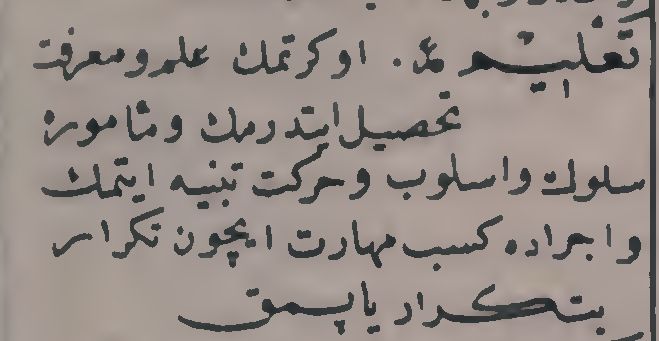 تعليم ع. اوكرتمك علم ومعرفت
تحصيل ايتدرمك ومأموره
سلوك واسلوب وحركت تنبيه ايتمك
واجراده كسب مهارت ايچون تكرار
بتكرار ياپمق